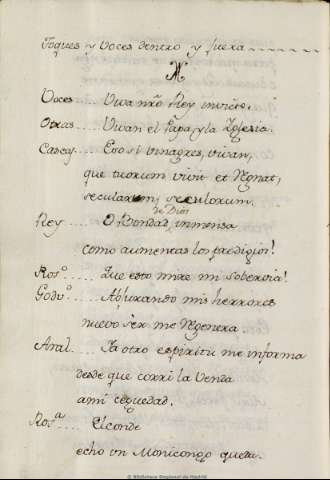 Toques y Voces dentro y fuera
Voces .... Viva nrõ Rey invicto.
Otras ..... Vivan el Papa, y la Yglesia.
Cascaj .... Eso si vinagres, vivan,
que tuorum vivit et Regnat,
secularum, seculorum.
de Dios
Rey ..... O Bondad, inmensa
como aumentas los prodigios!
Ros.º .... Que esto mire mi sobervia!
Godv.º .... Abjurando mis herrores
nuevo ser me Regenera
Atal .... Ya otro espiritu me informa
desde que corri la Venda
a mi ceguedad.
Ros.ª .... El conde
echo un Monicongo queda.
© Biblioteca Regional de Madrid